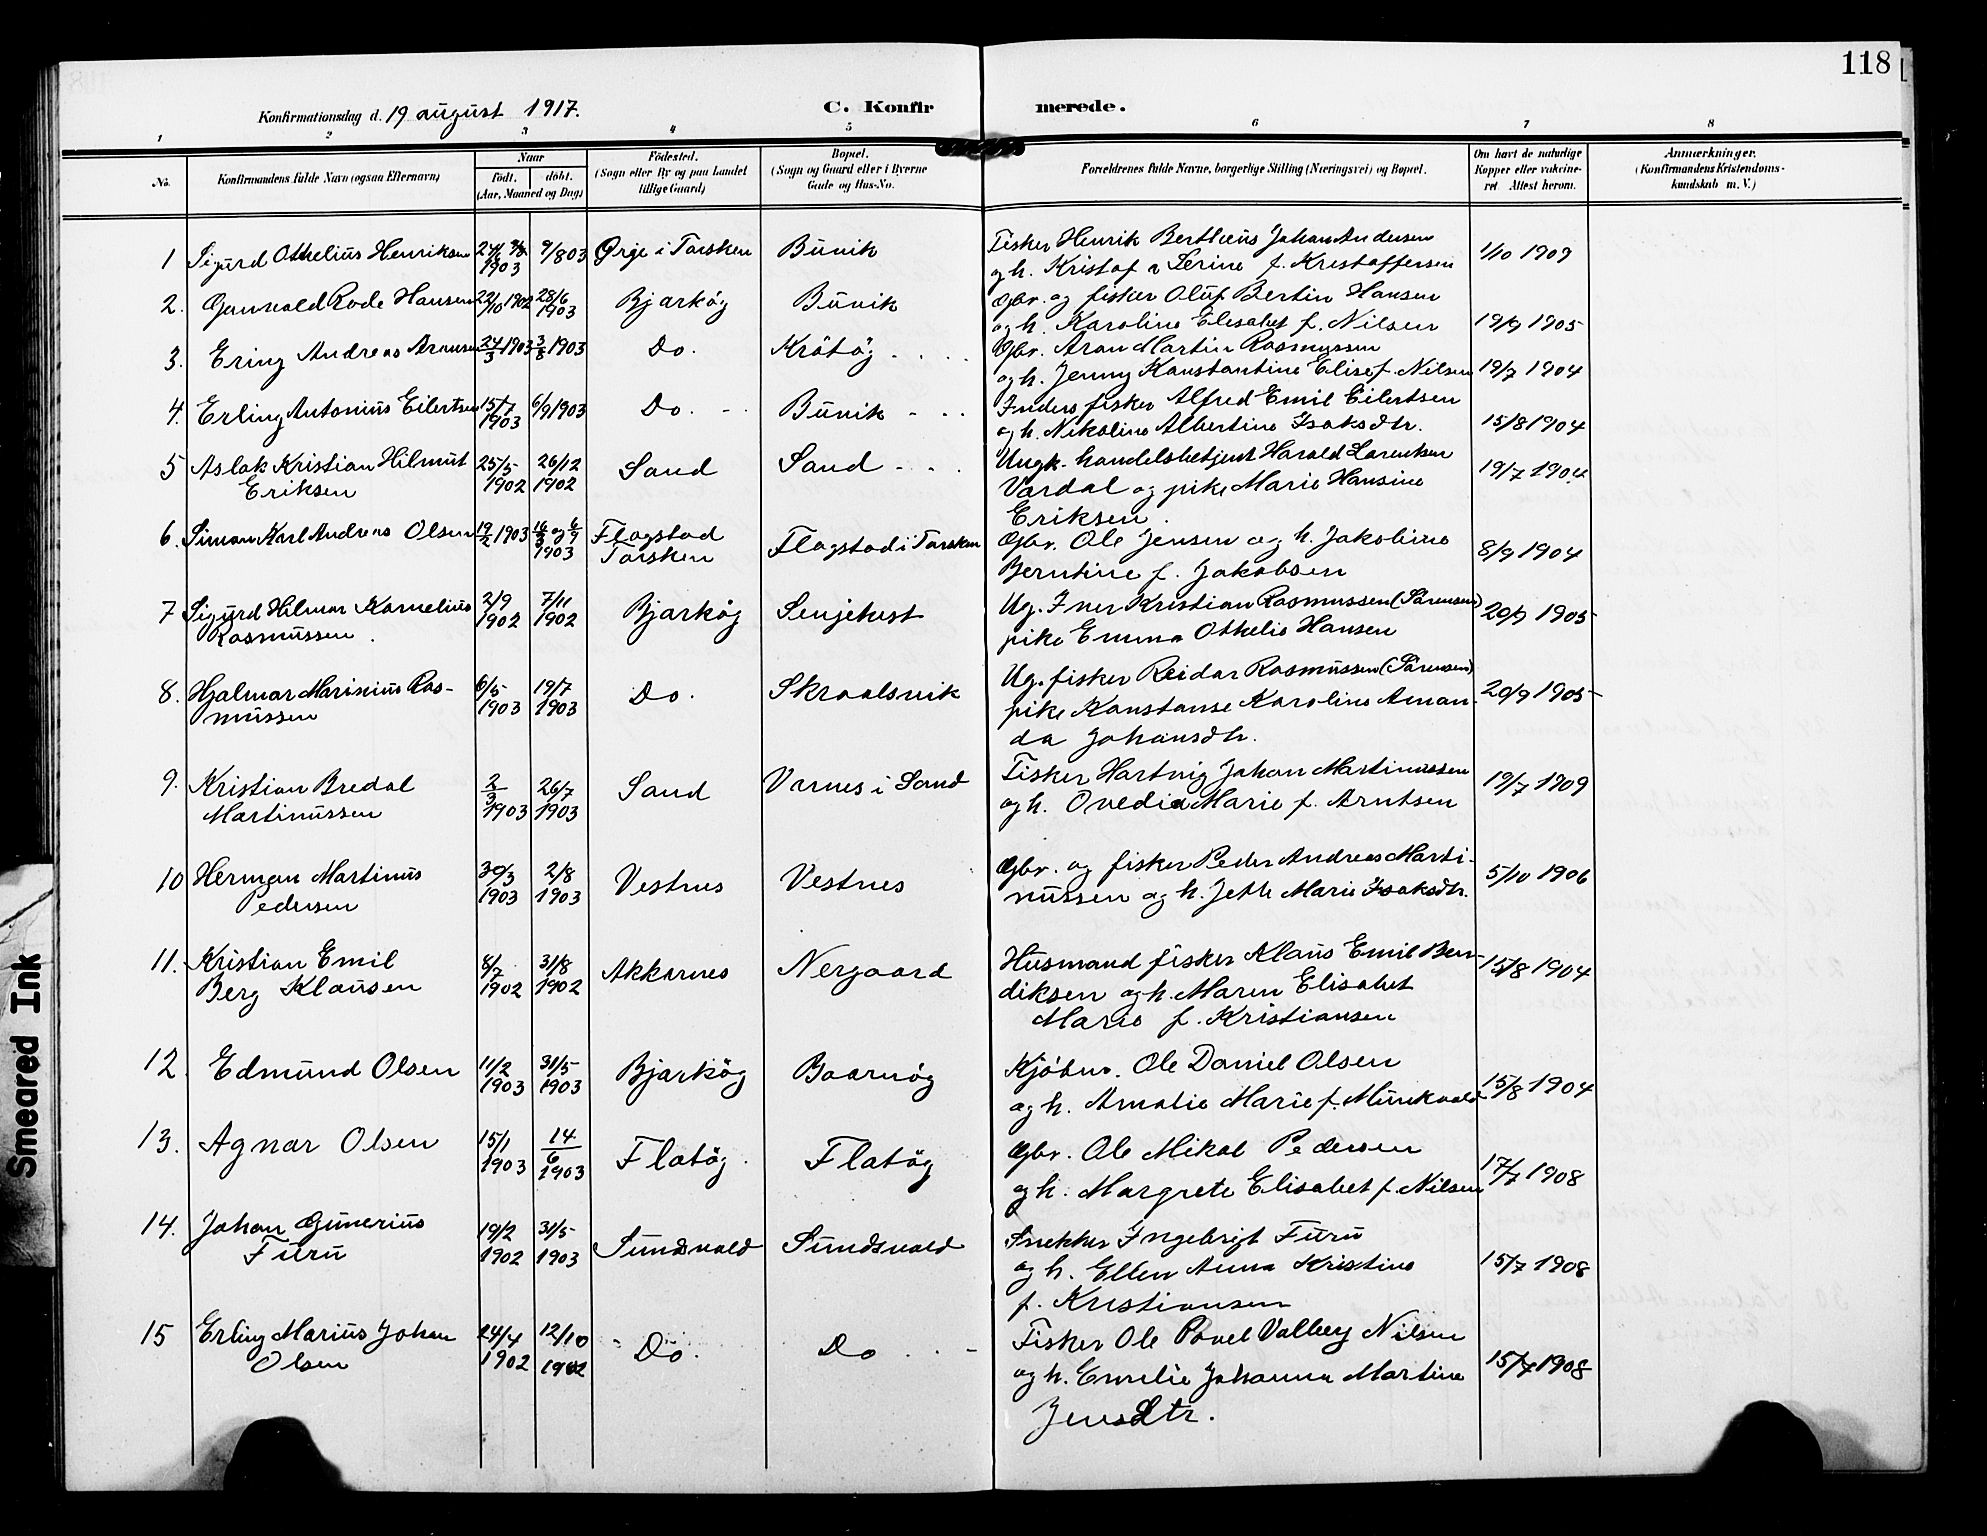 118
Konfirmationsdag d. 19 august 1917.
C. Konfirmerede.
1 2 3 4 5 6 7 8
No.
Konfirmandens fulde Navn (ogsaa Efternavn)
Naar
födt. döbt.
(Aar, Maaned og Dag)
Födested.
(Sogn eller By og paa Landet
tillige Gaard)
Bopæl.
(Sogn og Gaard eller i Byerne
Gade og Hus-No.
Forældrenes fulde Navne, borgerlige Stilling (Næringsvei) og Bopæl.
Om havt de naturlige
Kopper eller vakcine-
ret. Attest herom.
Anmærkninger.
(Konfirmandens Kristendoms-
kundskab m. V.)
1 Sigurd Othelius Henriksen 1903 9/8 03 i Torsken Buvik Fisker Henrik Bertheus Johan Andersen
og h. Serine f. Kristoffersen 1/10 1909
2. Gunvald Rode Hansen 22/10 1902 28/6 1903 Bjarköy Buvik Gbr. og fisker Oluf Bertin Hansen
og h. Karoline Elesabet f. Nilsen 19/9 1905
3. Ering Andreas Aronsen 24/3 1903 3/8 1903 Do. Krötöy Gbr. Aron Martin Rasmussen
og h. Jenny Konstantine Elise f. Nilsen 19/7 1904
4. Erling Antonius Eilertsen 15/7 1903 6/9 1903 Do. Buvik Inders fisker Alfred Emil Eilertsen
og h. Nikoline Albertine Isaksdtr. 15/8 1904
5 Aslak Kristian Hilmut
Eriksen 25/5 1902 26/12 1902 Sand Sand Ungk. handelsbetjent Harald Lorentsen
Vardal og pike Marie Hansine
Eriksen. 19/7 1904
6. Simon Karl Andreas Olsen 19/2 1903 1903 Flagstad
Torsken Flagstad i Torsken Gbr. Ole Jensen og h. Jakobine
Berntine f. Jakobsen 8/9 1904
7 Sigurd Hilmar Kornelius
Rasmussen. 2/9 1902 7/11 1902 Bjarköy Senjehest Ug. Iver Kristian Rasmussen (Sörensen)
pike Emma Othelie Hansen 20/9 1905
8. Hjalmar Marinius Ras-
mussen 6/5 1903 19/7 1903 Do. Skroolsvik Ug. fisker Reidar Rasmussen (Sörensen)
pike Konstanse Karoline Aman
da Johansdtr. 20/9 1905
9. Kristian Bredal
Martinussen 2/3 1903 26/7 1903 Sand Varnes i Sand Fisker Hartvig Johan Martinussen
og h. Ovedia Marie f. Arntsen 19/7 1909
10 Herman Martinus
Pedersen 30/3 1903 2/8 1903 Vestnes Vestnes Gbr. og fisker Peder Andreas Marti-
nussen og h. Jette Marie Isaksdtr. 5/10 1906
11. Kristian Emil
Berg Klausen 8/7 1902 31/8 1902 Akkarnes Nergaard Husmand fisker Klaus Emil Ben-
diksen og h. Maren Elisabet
Marie f. Kristiansen 15/8 1904
12. Edmund Olsen 11/2 1903 31/5 1903 Bjarköy Baarnöy Kjöbm. Ole Daniel Olsen
og h. Amalie Marie f. Munkvold 15/8 1904
13. Agnar Olsen 15/1 1903 14/6 1903 Flatöy. Flatöy Gbr. Ole Mikal Pedersen
og h. Margrete Elisabet f. Nilsen 17/7 1908
14. Johan Gunerius
Furu 19/2 1902 31/5 1903 Sundsvold Sundsvold Snekker Ingebrigt Furu
og h. Ellen Anna Kristine
f. Kristiansen 15/7 1908
15 Erling Marius Johan
Olsen 24/4 1902 12/10 1902 Do. Do Fisker Ole Povel Valberg Nilsen
og h. Emelie Johanna Martine
Jensdtr. 15/7 1908
Smeared Ink